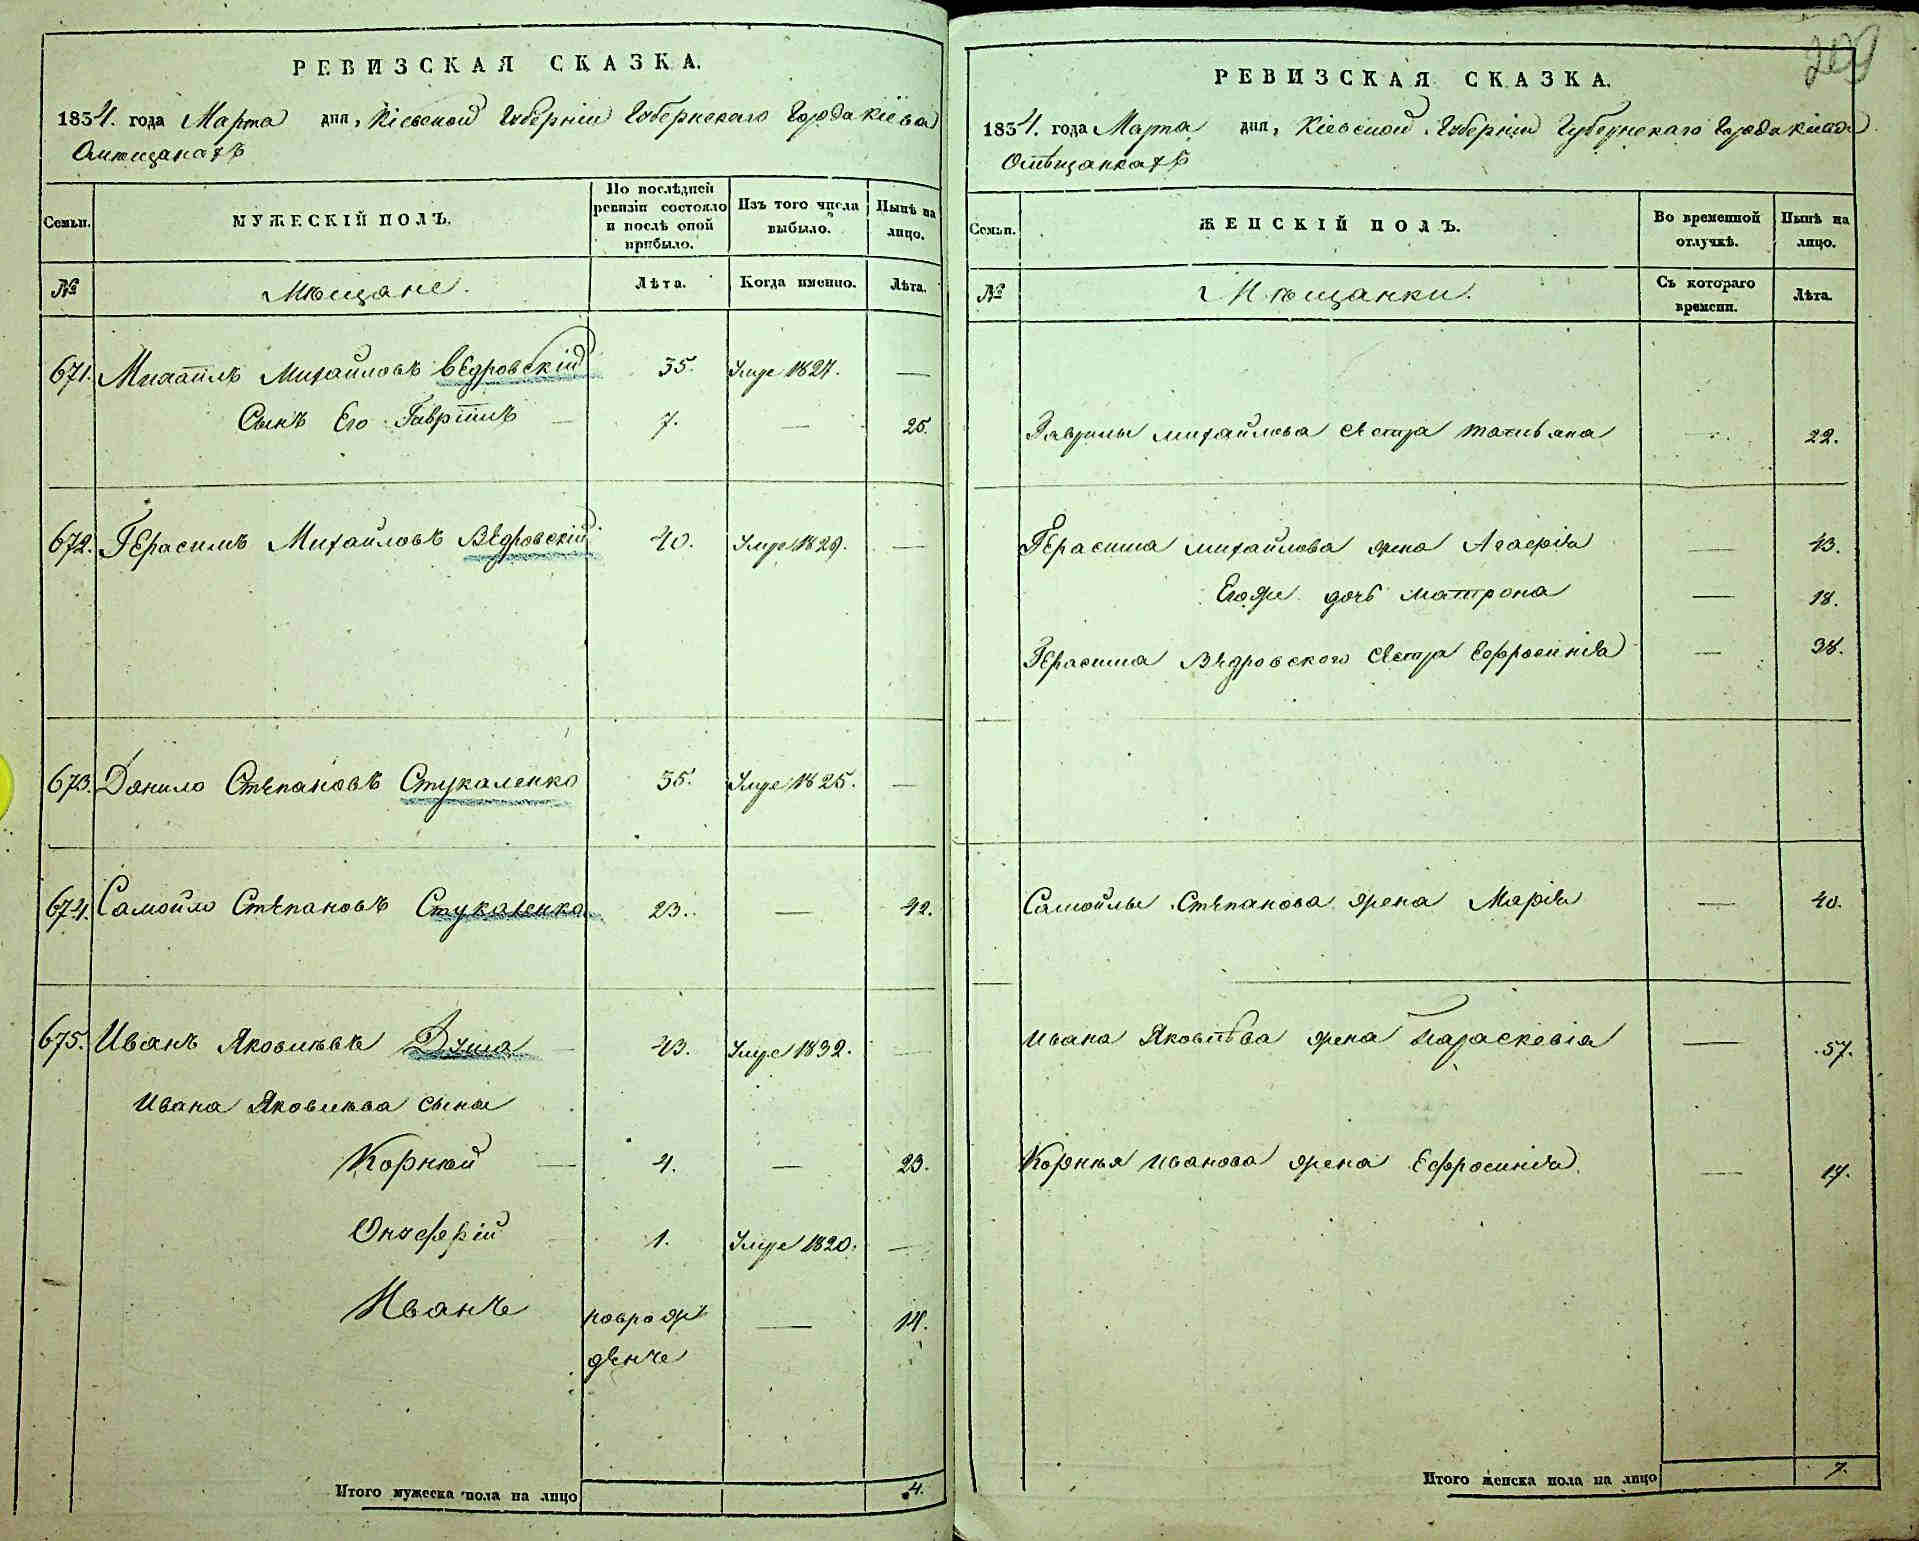 РЕВИЗСКАЯ СКАЗКА.
1834. года Марта дня, Кіевской Губерніи Губернскаго Города Кіева
О мещанахъ
Семьи.
МУЖЕСКІЙ ПОЛЪ.
По послѣдней ревизіи состояло и послѣ оной прибыло.
Изъ того числа выбыло.
Нынѣ на лицо.
№
Мѣщане.
Лѣта.
Когда именно.
Лѣта.
671. Михаилъ Михайловъ Вѣдровскій 35. Умре 1827. —
Сынъ Его Гаврiилъ — 7. — 25.
672. Герасимъ Михайловъ Вѣдровскій 40. Умре 1829. —
673. Данило Стѣпановъ Стукаленко 35. Умре 1825. —
674. Самойло Стѣпановъ Стукаленко 23. — 42.
675. Иванъ Яковлѣвъ Дзюма 43. Умре 1832. —
Ивана Яковлѣва сыны
Корнѣй — 4. — 23.
Онуфрій 1. Умре 1820. —
Иванъ новрож- — 14.
дѣнъ
Итого мужеска пола на лицо 4.
РЕВИЗСКАЯ СКАЗКА.
1834. года Марта дня, Кіевской Губерніи Губернскаго Города Кіева
О мѣщанкахъ
Семьи.
ЖЕНСКІЙ ПОЛЪ.
Во временной отлучкѣ.
Нынѣ на лицо.
№
Мѣщанки.
Съ котораго времени.
Лѣта.
Гаврилы Михайлова сестра Татьяна — 22.
Герасима Михайлова жена Агафія — 43.
Егоже дочь Матрона — 18.
Герасима Вѣдровского сестра Ефросинія — 38.
Самойлы Стѣпанова жена Марія — 40.
Ивана Яковлѣва жена Параскевія — 57.
Корнѣя Иванова жена Ефросинія — 17.
Итого женска пола на лицо 7.